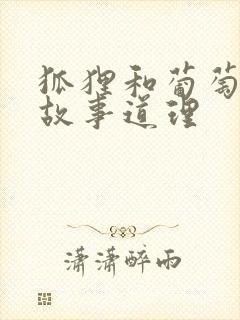 狐狸和葡萄
故事道理
潇潇醉雨